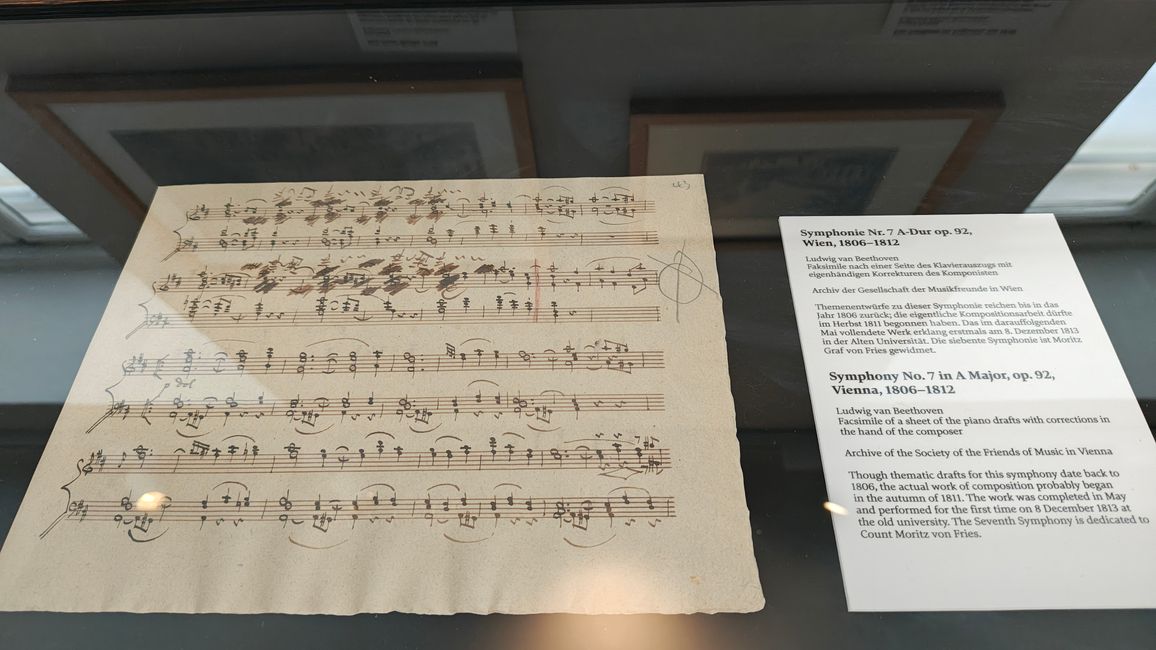 43
dol
Symphonie Nr. 7 A-Dur op. 92,
Wien, 1806–1812
Ludwig van Beethoven
Faksimile nach einer Seite des Klavierauszugs mit
eigenhändigen Korrekturen des Komponisten
Archiv der Gesellschaft der Musikfreunde in Wien
Themenentwürfe zu dieser Symphonie reichen bis in das
Jahr 1806 zurück; die eigentliche Kompositionsarbeit dürfte
im Herbst 1811 begonnen haben. Das im darauffolgenden
Mai vollendete Werk erklang erstmals am 8. Dezember 1813
in der Alten Universität. Die siebente Symphonie ist Moritz
Graf von Fries gewidmet.
Symphony No. 7 in A Major, op. 92,
Vienna, 1806–1812
Ludwig van Beethoven
Facsimile of a sheet of the piano drafts with corrections in
the hand of the composer
Archive of the Society of the Friends of Music in Vienna
Though thematic drafts for this symphony date back to
1806, the actual work of composition probably began
in the autumn of 1811. The work was completed in May
and performed for the first time on 8 December 1813 at
the old university. The Seventh Symphony is dedicated to
Count Moritz von Fries.